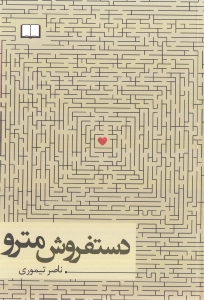 دستفروش مترو
ناصر تیموری